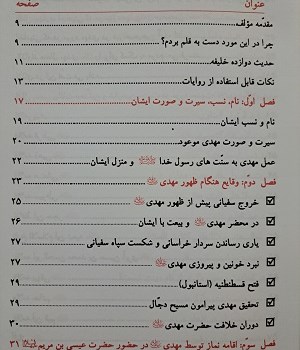 عنوان صفحه
مقدّمه مؤلف ۹
چرا در این مورد دست به قلم بردم؟ ۹
حدیث دوازده خلیفه ۱۱
نکات قابل استفاده از روایات ۱۳
فصل اوّل: نام، نسب، سیرت و صورت ایشان ۱۷
نام و نسب ایشان ۱۹
سیرت و صورت مهدی موعود ۲۰
عمل مهدی به سنّت های رسول خدا ﷺ و منزل ایشان ۲۲
فصل دوّم: وقایع هنگام ظهور مهدی ۲۳
خروج سفیانی پیش از ظهور مهدی ۲۵
در محضر مهدی و بیعت با ایشان ۲۶
یاری رساندن سردار خراسانی و شکست سپاه سفیانی ۲۷
نبرد خونین و پیروزی مهدی ۲۷
فتح قسطنطنیه (استانبول) ۲۹
تحقیق مهدی پیرامون مسیح دجّال ۲۹
دوران خلافت حضرت مهدی ۳۰
فصل سوم: اقامه نماز توسط مهدی در حضور حضرت عیسی بن مریم ۳۱